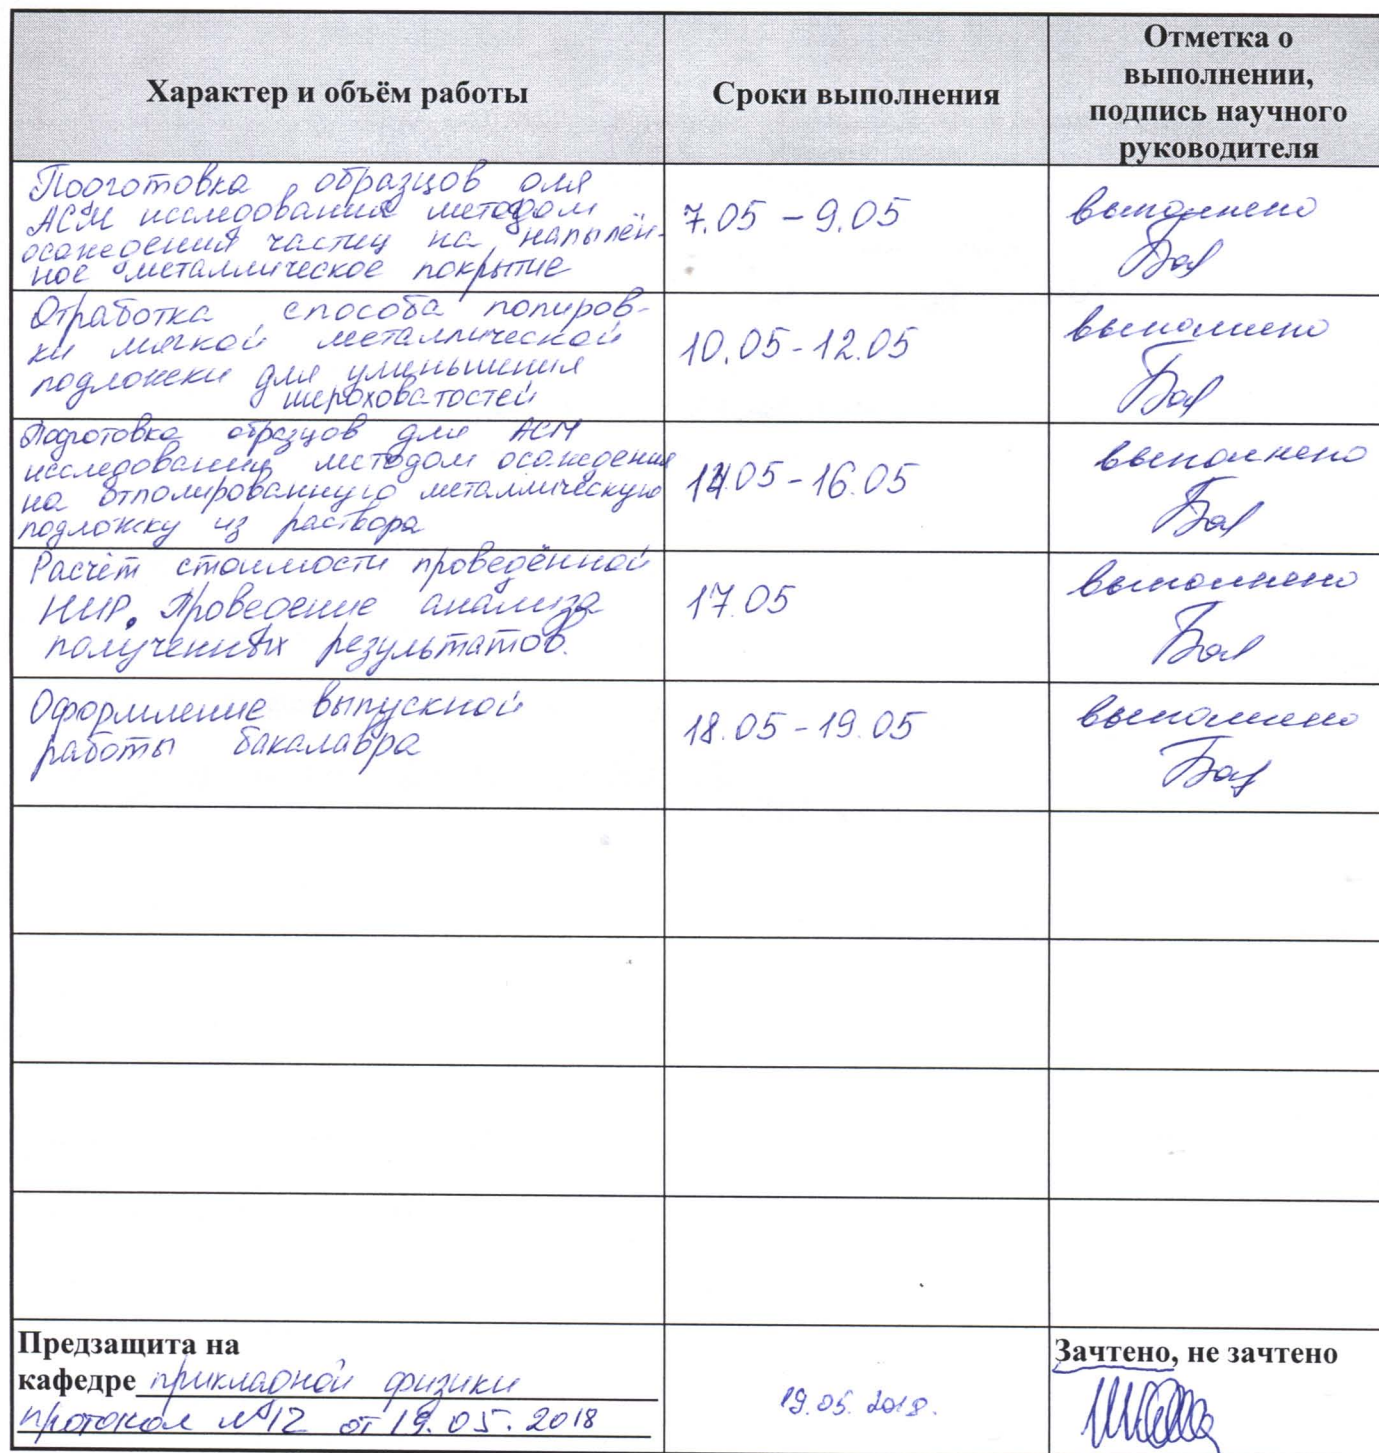 Характер и объём работы
Сроки выполнения
Отметка о
выполнении,
подпись научного
руководителя
Подготовка образцов для
АСМ исследования методом
осаждения частиц на напылён-
ное металлическое покрытие
7.05 - 9.05
выполнено
Отработка способа полиров-
ки мягкой металлической
подложки для уменьшения
шероховатостей
10.05-12.05
выполнено
Подготовка образцов для АСМ
исследования методом осаждения
на отполированную металлическую
подложку из раствора
14.05-16.05
выполнено
Расчёт стоимости проведённой
НИР. Проведение анализа
полученных результатов.
17.05
выполнено
Оформление выпускной
работы бакалавра
18.05-19.05
выполнено
Предзащита на
кафедре прикладной физики
протокол №12 от 19.05.2018
19.05.2018.
Зачтено, не зачтено